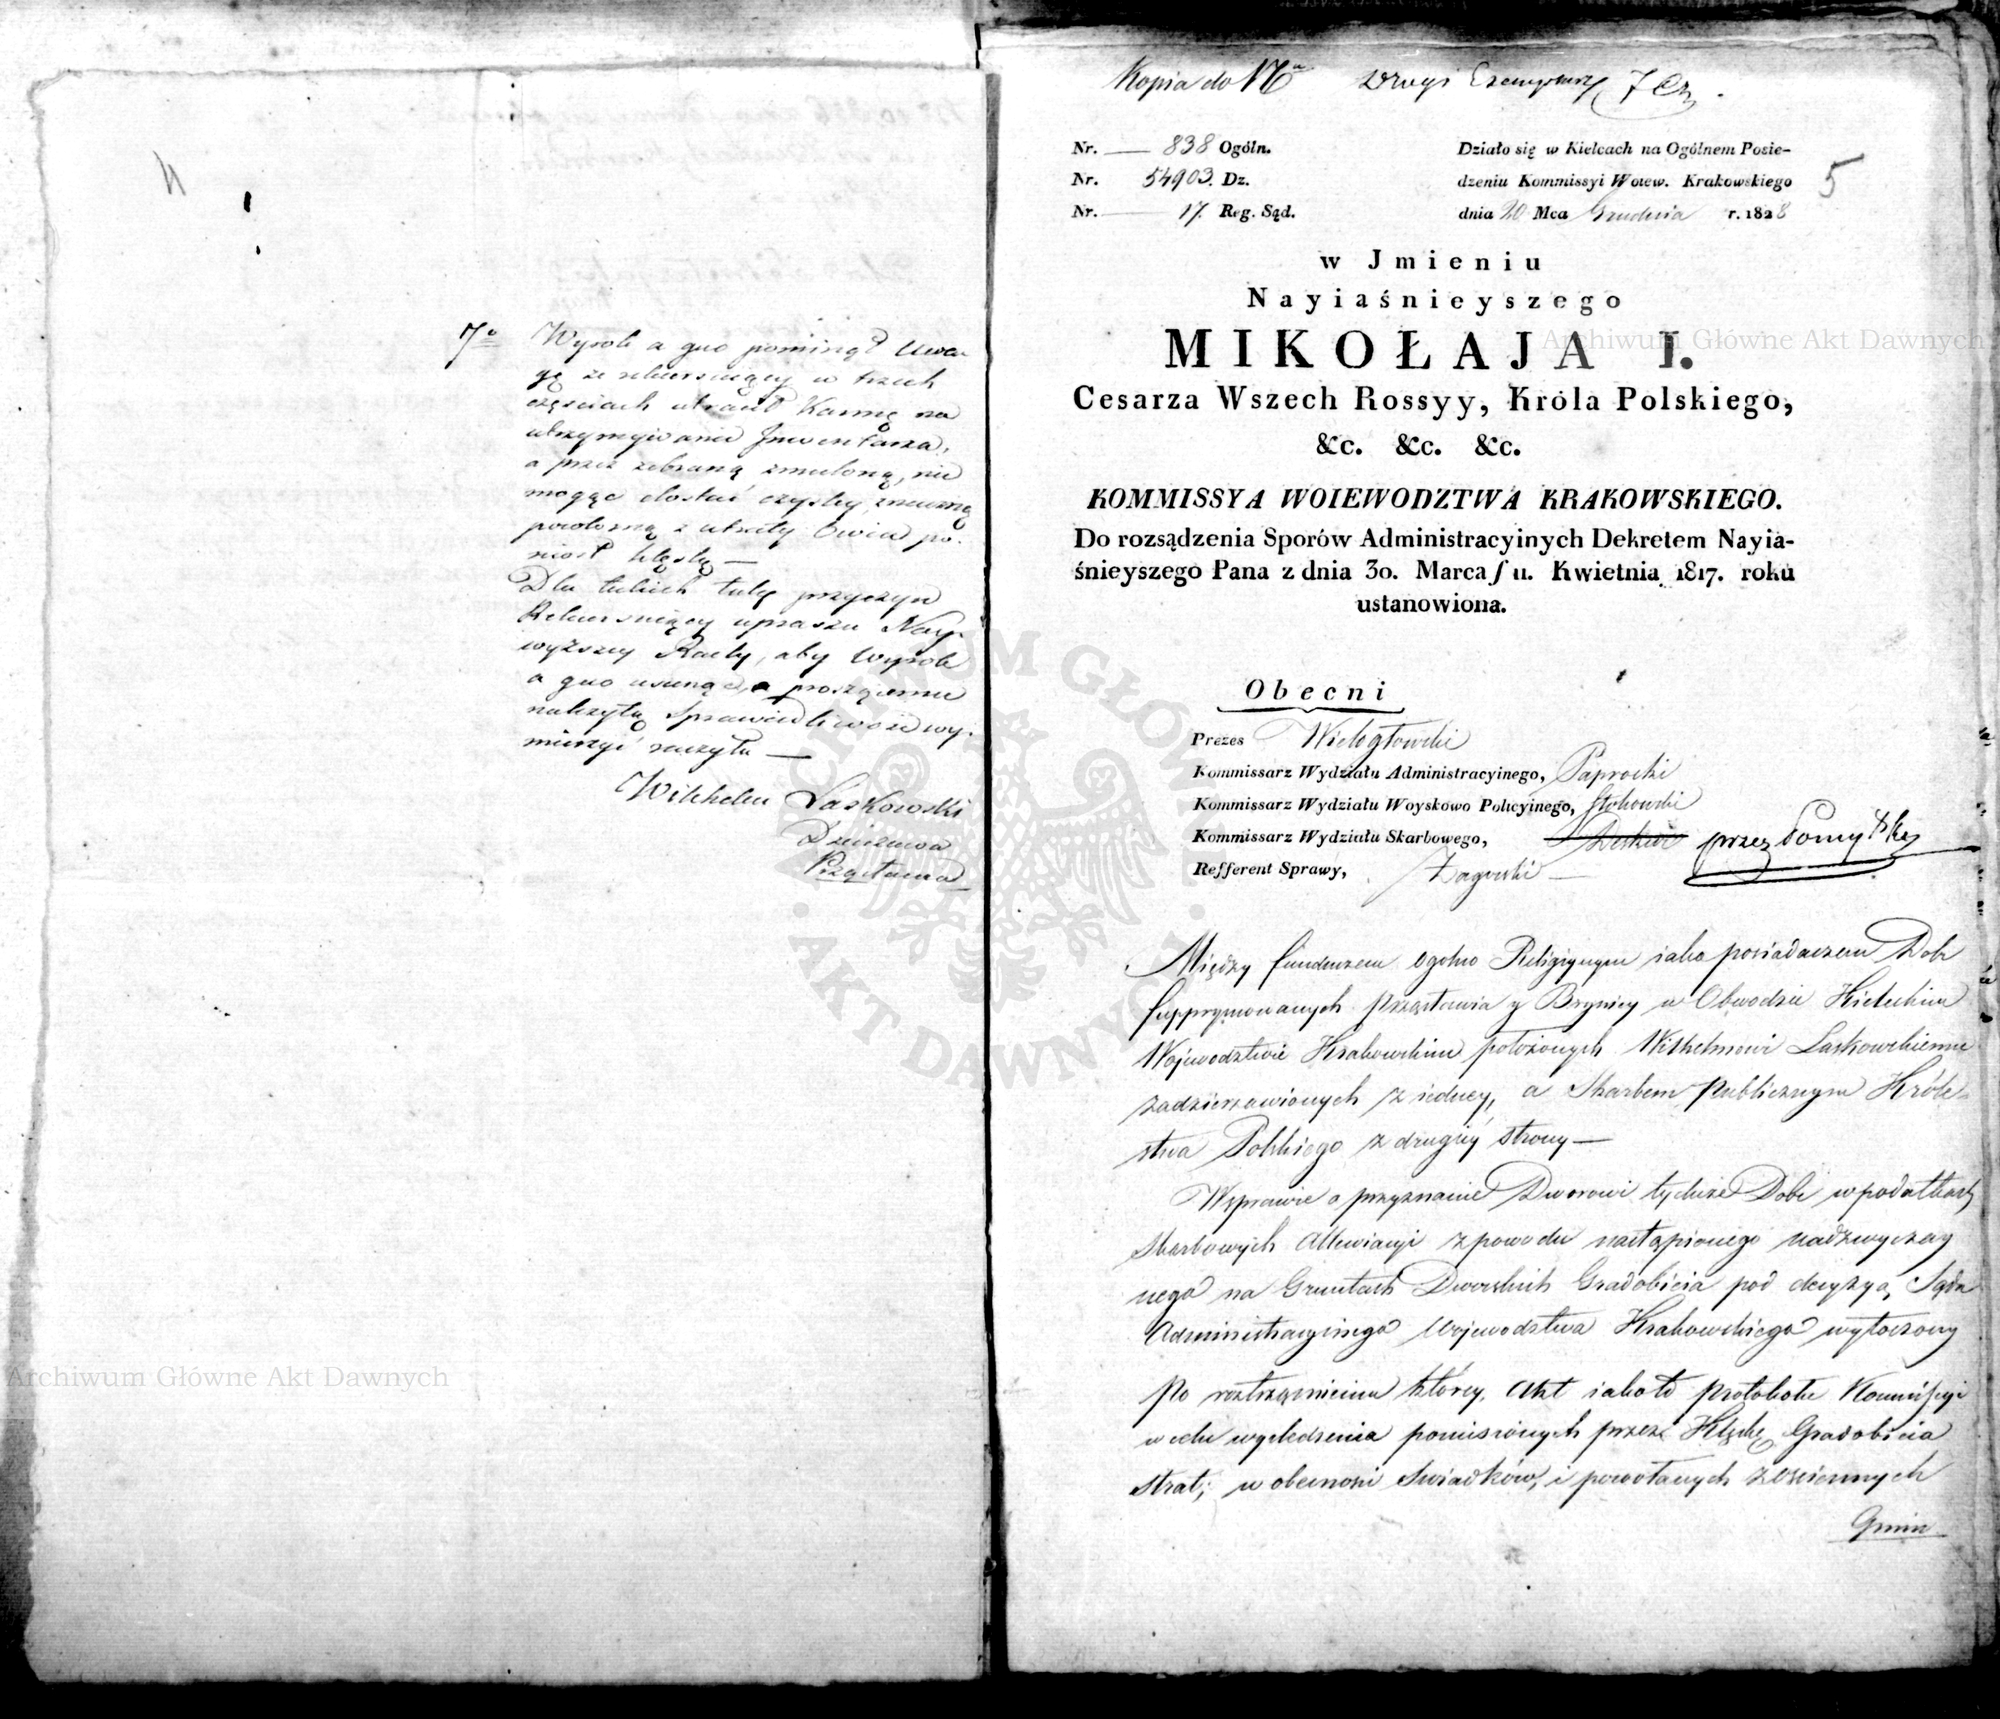 7o Wyrok a quo pominął Uwa
gę ze rekursuiący w trzech
częsciach utracił Karmę na
utrzymywanie Jnwentarza,
a przez zebraną zmuloną, nie
mogąc dostać czystey zimną
powodzią z utraty Owiec po-
niosł klęskę —
Dla takich tulę przyczyn
Rekursuiący uprasza Nay-
wyższey Rady, aby Wyrok
a quo usunąć, a proszącemu
należytą Sprawiedliwość wy-
mierzyć raczyła —
Wilhelm Laskowski
Dzierzawca
Przęsławia
Kopia do
Drugi Exemplarz
Nr. — 838 Ogóln.
Nr. 54903. Dz.
Nr. — 17. Reg. Sąd.
Działo się w Kielcach na Ogólnem Posie-
dzeniu Kommissyi Woiew. Krakowskiego
dnia 20 Mca Grudnia r. 1828
5
w Jmieniu
Nayiaśnieyszego
MIKOŁAJA I.
Cesarza Wszech Rossyy, Króla Polskiego,
&c. &c. &c.
KOMMISSYA WOIEWODZTWA KRAKOWSKIEGO.
Do rozsądzenia Sporów Administracyinych Dekretem Nayia-
śnieyszego Pana z dnia 30. Marca / 11. Kwietnia 1817. roku
ustanowiona.
Obecni
Prezes Wielogłowski
Kommissarz Wydziału Administracyinego, Paprocki
Kommissarz Wydziału Woyskowo Policyinego, Stokowski
Kommissarz Wydziału Skarbowego, przez Pomyłkę
Refferent Sprawy, Zagorski —
Między funduszem ogolno Religijnym iako posiadaczem Dobr
supprymowanych Przęsławia y Brynicy w Obwodzie Kieleckim
Wojewodztwie Krakowskim położonych Wilhelmowi Laskowskiemu
zadzierzawionych z iedney, a Skarbem Publicznym Króle-
stwa Polskiego z drugiey strony —
W sprawie o przyznanie Dworowi tychże Dobr w podatkach
Skarbowych Allewiacyi z powodu nastąpionego nadzwyczay
nego na Gruntach Dworskich Gradobicia pod decyzyą Sądu
Administracyinego Wojewodztwa Krakowskiego wytoczoney
Po roztrząśnieniu którey, Akt iako to Protokołu Kommissyi
w celu wyśledzenia poniesionych przez Klęskę Gradobicia
strat; w obecności Swiadków, i powołanych ościennych
Gmin
Archiwum Główne Akt Dawnych
Archiwum Główne Akt Dawnych
ARCHIWUM GŁÓWNE
AKT DAWNYCH